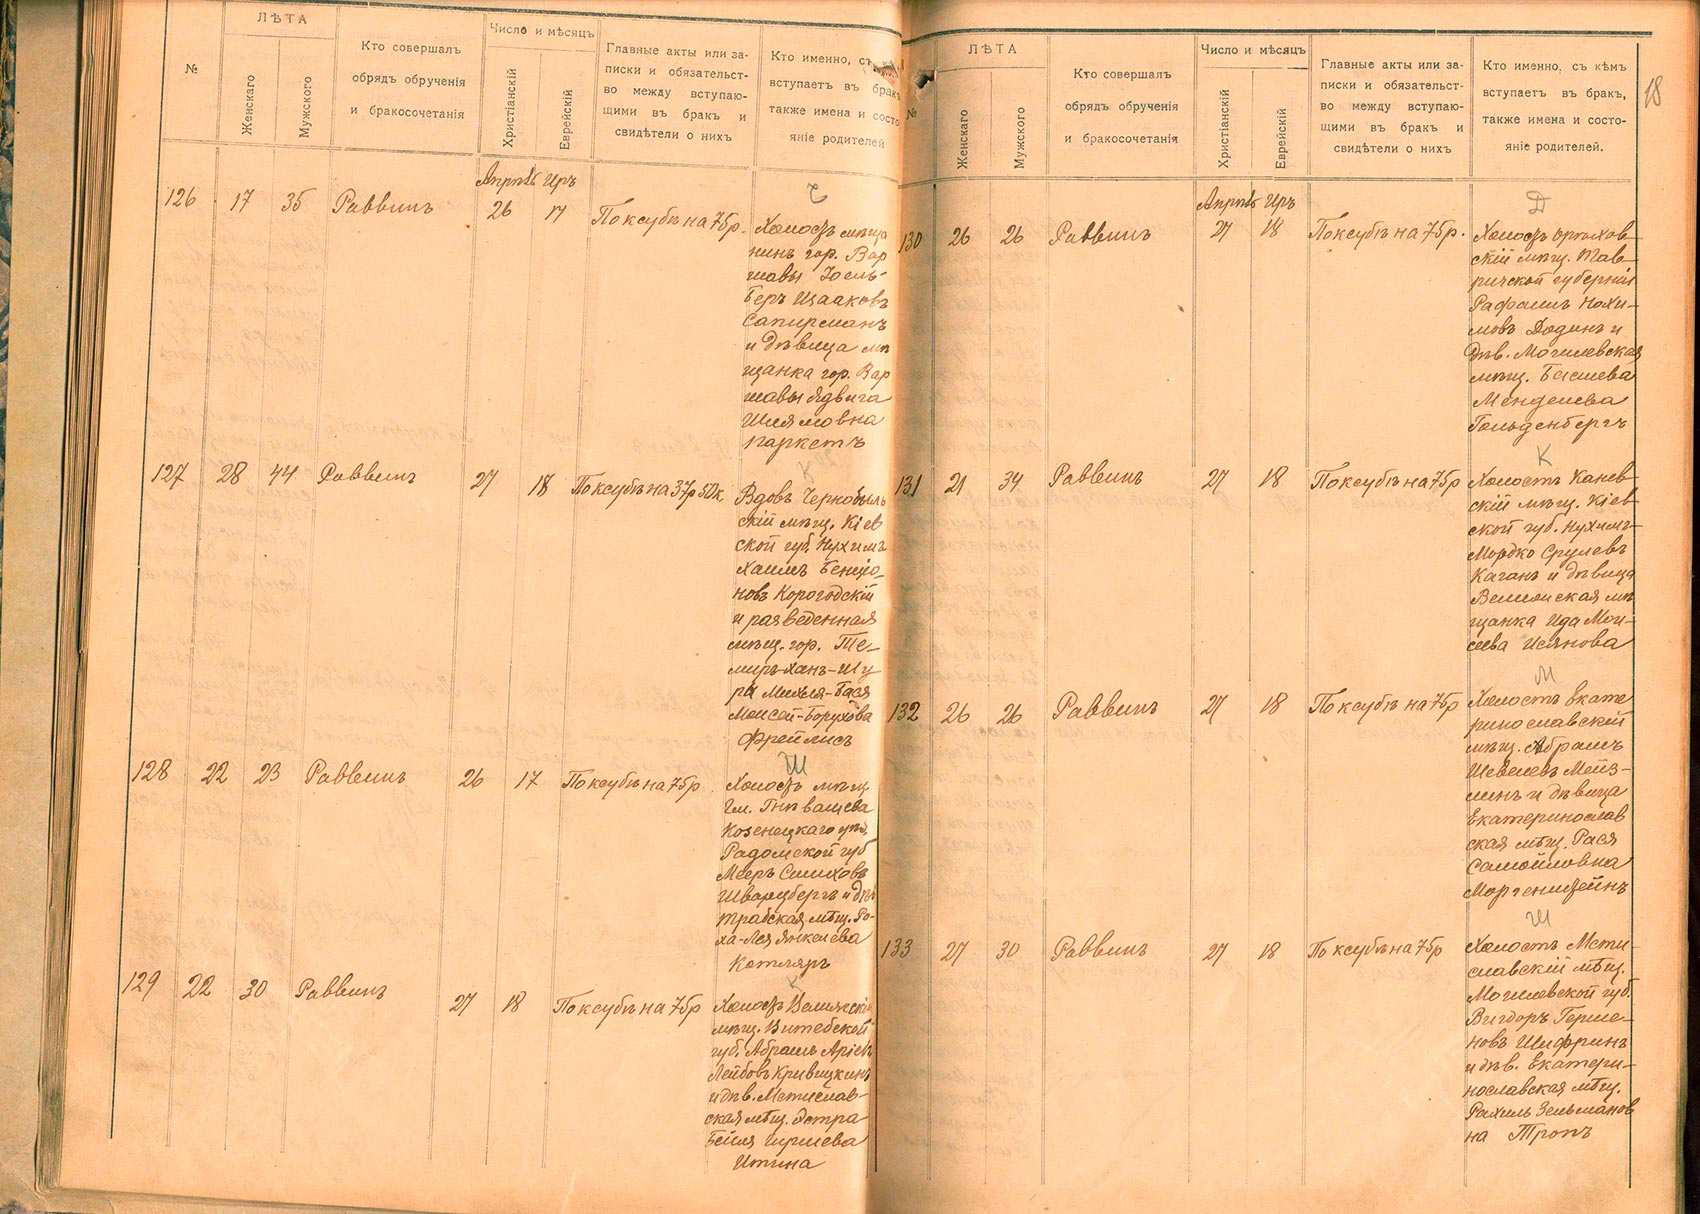 №
ЛѢТА
Женскаго
Мужского
Кто совершалъ
обрядъ обрученія
и бракосочетанія
Число и мѣсяцъ
Христіанскій
Еврейскій
Главные акты или за-
писки и обязательст-
во между вступаю-
щими въ бракъ и
свидѣтели о нихъ
Кто именно, съ
вступаетъ въ бракъ
также имена и состо
яніе родителей
Апрѣль Иръ
126 17 35 Раввинъ 26 17 По ксубѣ на 75 р.
Холостъ мѣща
нинъ гор. Вар
шавы Іоель-
Беръ Ицааковъ
Сапирманъ
и дѣвица мѣ
щанка гор. Вар
шавы Ядвига
Шлямовна
Паркетъ
127 28 44 Раввинъ 27 18 По ксубѣ на 37 р 50 к.
К
Вдовъ Чернобыль
скій мѣщ. Кіев
ской губ. Нухимъ
Хаимъ Бенціо-
новъ Корогодскій
и разведенная
мѣщ. гор. Те-
миръ-Ханъ-Шу
ра Михля-Бася
Моисей-Борухова
Фрейлисъ
128 22 23 Раввинъ 26 17 По ксубѣ на 75 р
Ш
Холостъ мѣщ.
Гм. Гнѣвашева
Козенецкаго
Радомской губ
Мееръ
Шварцбергъ и дѣв
мѣщ. Ро-
ха-Лея Янкелева
Котляръ
129 22 30 Раввинъ 27 18 По ксубѣ на 75 р
К
Холостъ Велижскій
мѣщ. Витебской
губ. Абрамъ Аріевъ
Лейбовъ Кривицкинъ
и дѣв. Мстислав-
ская мѣщ. Эстра
Бейля Гиршева
Итина
18
№
ЛѢТА
Женскаго
Мужского
Кто совершалъ
обрядъ обрученія
и бракосочетанія
Число и мѣсяцъ
Христіанскій
Еврейскій
Главные акты или за-
писки и обязательст-
во между вступаю-
щими въ бракъ и
свидѣтели о нихъ
Кто именно, съ кѣмъ
вступаетъ въ бракъ,
также имена и состо-
яніе родителей.
Апрѣль Иръ
130 26 26 Раввинъ 27 18 По ксубѣ на 75 р.
Д
Холостъ Орѣхов-
скій мѣщ. Тав-
рической губерніи
Рафаилъ Нохи-
мовъ Додинъ и
дѣв. Могилевская
мѣщ. Басшева
Менделева
Гольденбергъ
131 21 34 Раввинъ 27 18 По ксубѣ на 75 р
К
Холостъ Канев-
скій мѣщ. Кіев-
ской губ. Нухимъ-
Мордко Срулевъ
Каганъ и дѣвица
мѣ
щанка Ида Мои-
сеева
132 26 26 Раввинъ 27 18 По ксубѣ на 75 р
М
Холостъ Екате
ринославскій
мѣщ. Абрамъ
Шевелевъ Мейз-
линъ и дѣвица
Екатеринослав
ская мѣщ. Рася
Самойловна
Моргенштейнъ
133 27 30 Раввинъ 27 18 По ксубѣ на 75 р
Ш
Холостъ Мсти-
славскій мѣщ.
Могилевской губ.
Вигдоръ Герше-
новъ Шифринъ
и дѣв. Екатери-
нославская мѣщ.
Рахиль Зельманов
на Тропъ